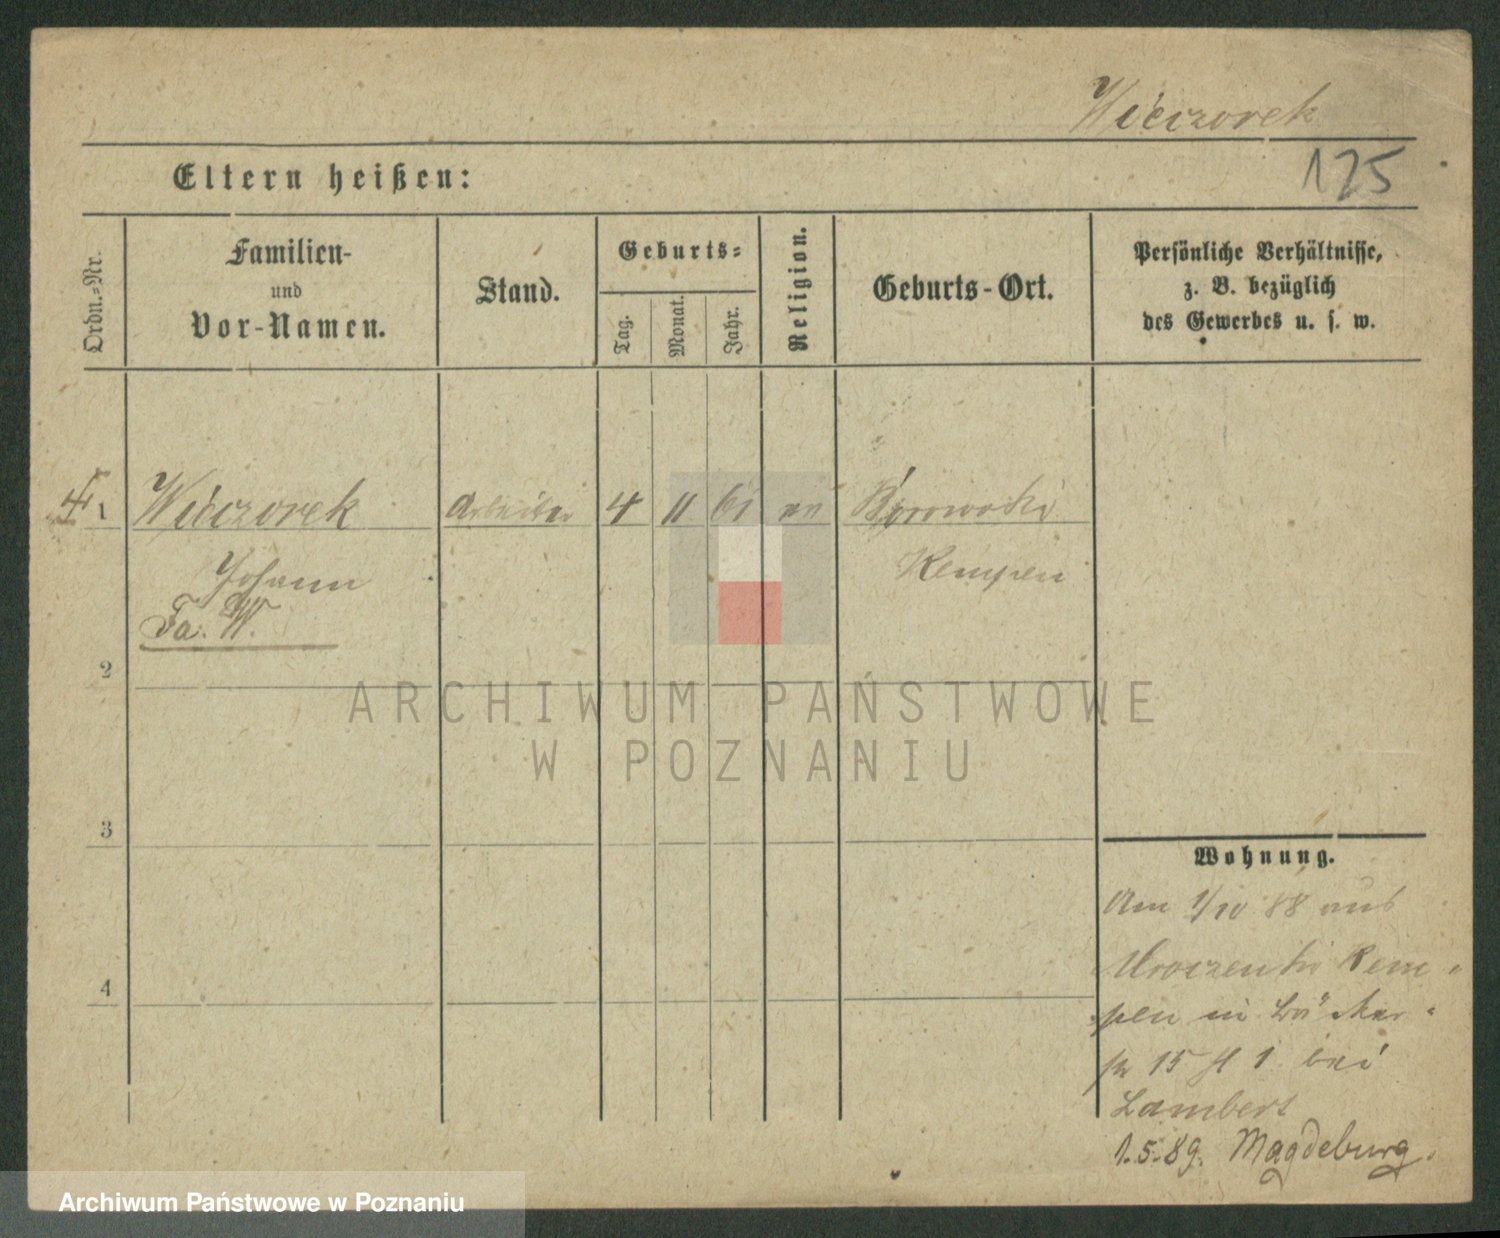 Wieczorek
125
Eltern heißen:
Ordn.-Nr.
Familien-
und
Vor-Namen.
Stand.
Geburts-
Tag.
Monat.
Jahr.
Religion.
Geburts-Ort.
Persönliche Verhältnisse,
z. B. bezüglich
des Gewerbes u. s. w.
1 Wieczorek Arbeiter 4 11 61
Johann Kempen
Fa. W.
2
3
4
ARCHIWUM PAŃSTWOWE
W POZNANIU
Wohnung.
Am 1/10 88 aus
Mroczenski Kem-
pen in
15 H 1 bei
Lambert
1.5.89. Magdeburg.
Archiwum Państwowe w Poznaniu